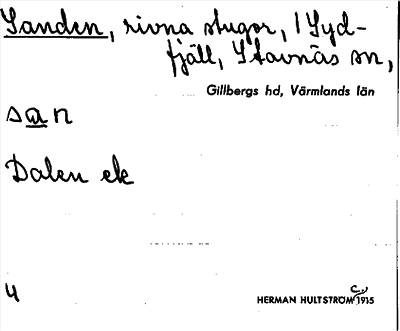 Sanden, rivna stugor, i Syd-
fjäll, Stavnäs sn,
Gillbergs hd, Värmlands län
san
Dalen ek
4
HERMAN HULTSTRÖM c. 1915